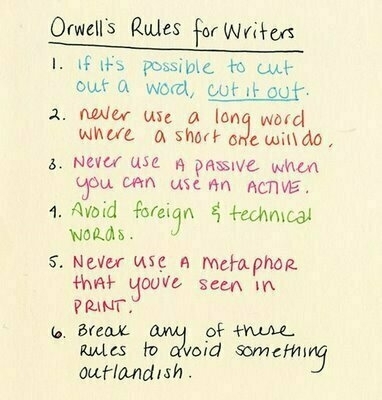 Orwell's Rules for Writers
1. if it's possible to cut
out a word, cut it out.
2. never use a long word
where a short one will do.
3. Never use a passive when
you can use an active.
4. Avoid foreign & technical
words.
5. Never use a metaphor
that you've seen in
print.
6. Break any of these
rules to avoid something
outlandish.